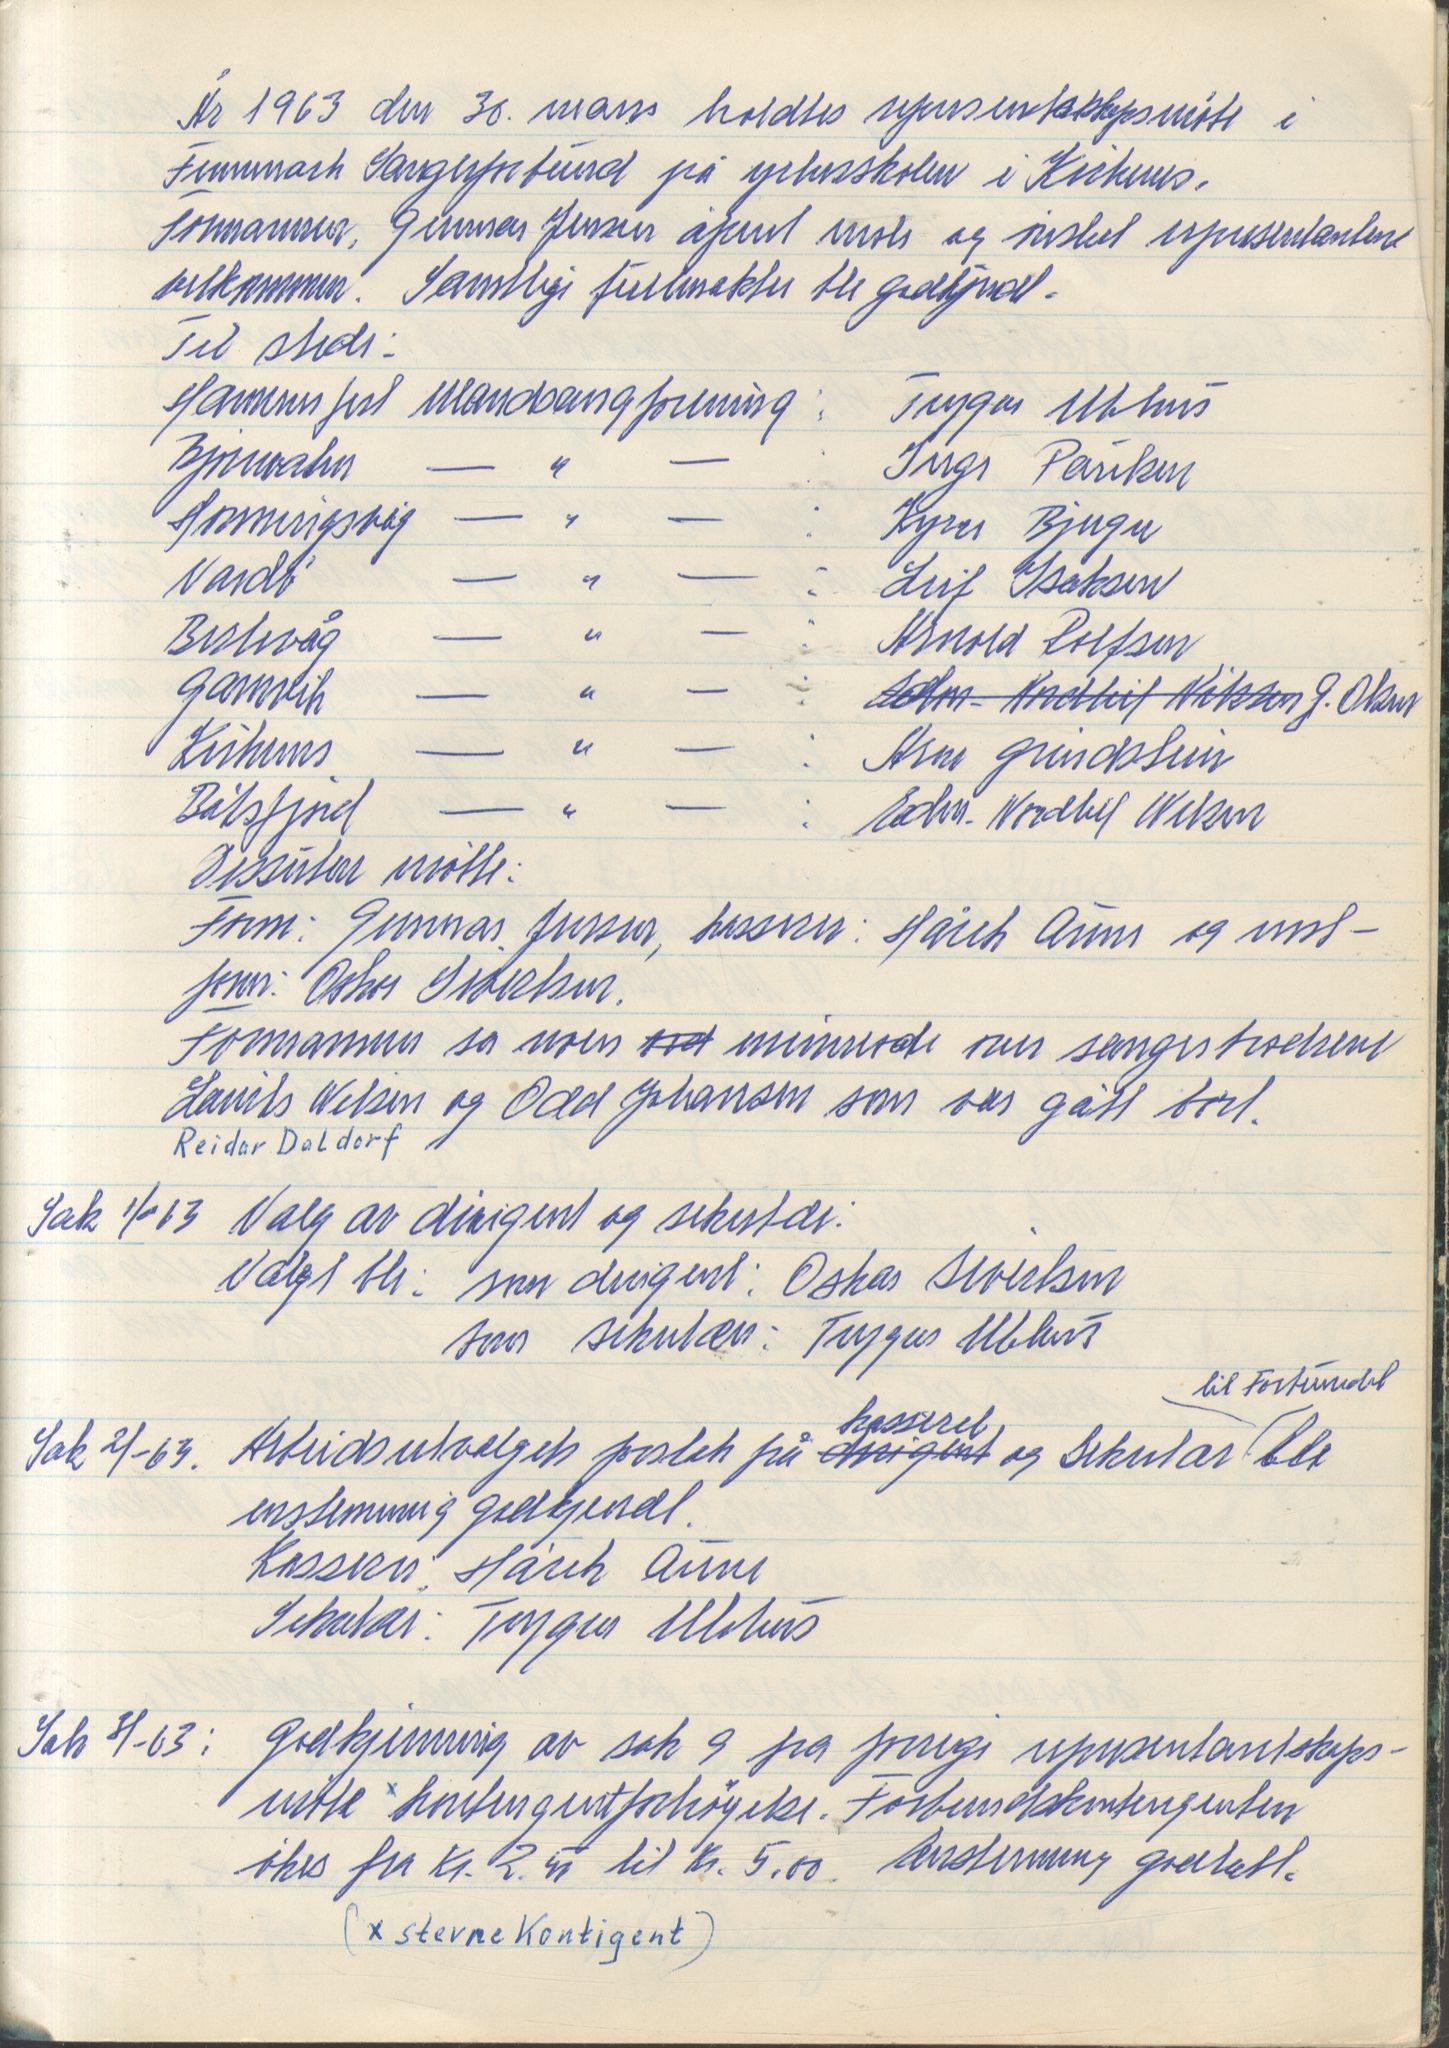 År 1963 den 30. mars holdtes representskapsmöte i
Finnmark Sangerforbund på yrkesskolen i Kirkenes.
Formannen, Gunnar Jensen åpent möte og önsket representantene
velkommen. Samtlige fullmakter ble godkjendt.
Til stede:
Hammerfest Mandssangforening : Trygve
Bjørnevatn — " — : Inge
Honningsvåg — " — : Bjerge
Vardö — " — : Leif Isaksen
Berlevåg — " — : Arnold Rolfsen
Gamvik — " — : Edm. Nordhif Nilssen G. Olsen
Kirkenes — " — : Arne Grindstein
Båtsfjord — " — : Edm. Nordhif Nilsen
Dessuten mötte:
Form: Gunnar Jensen, kasserer: Hårek Aune og vise-
form: Oskar Sivertsen.
Formannen sa noen ord minneord over sangerbrödrene
Laurits Nilsen og Odd Johansen som var gått bort.
Reidar Daldorf
Sak 1/-63 Valg av dirigent og sekretær:
Valgt ble: som dirigent: Oskar Sivertsen
som sekretær: Trygve
til Forbundet
kasserer
Sak 2/-63. Arbeidsutvalgets forslag på dirigent og Sekretær ble
enstemmig godkjendt.
Kasserer: Hårek Aune
Sekretær: Trygve
Sak 3/-63: Godkjenning av sak 9 fra forrige representantskaps-
möte x kontingentforhöyelse. Forbundskontingenten
ökes fra kr. 2.50 til kr. 5.00. Enstemmig godtatt.
(x stevnekontigent)